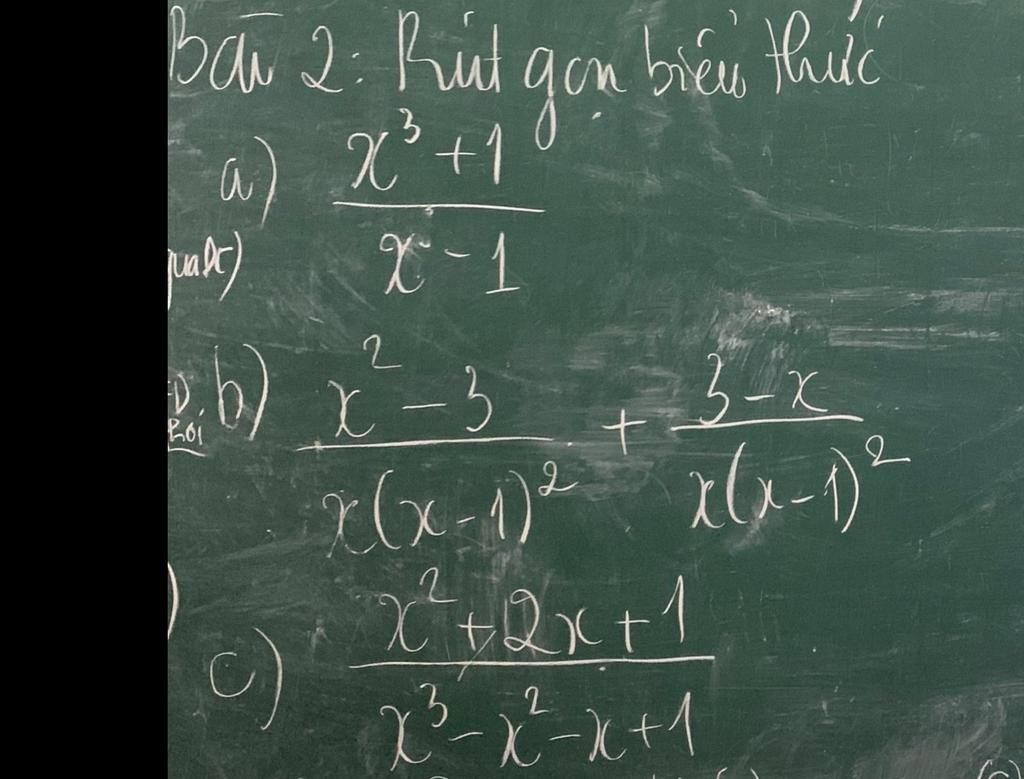 Bài 2: Rút gọn biểu thức
a) (x³ + 1) / (x - 1)
b) (x² - 3) / (x(x-1)²) + (3 - x) / (x(x-1)²)
c) (x² + 2x + 1) / (x³ - x² - x + 1)